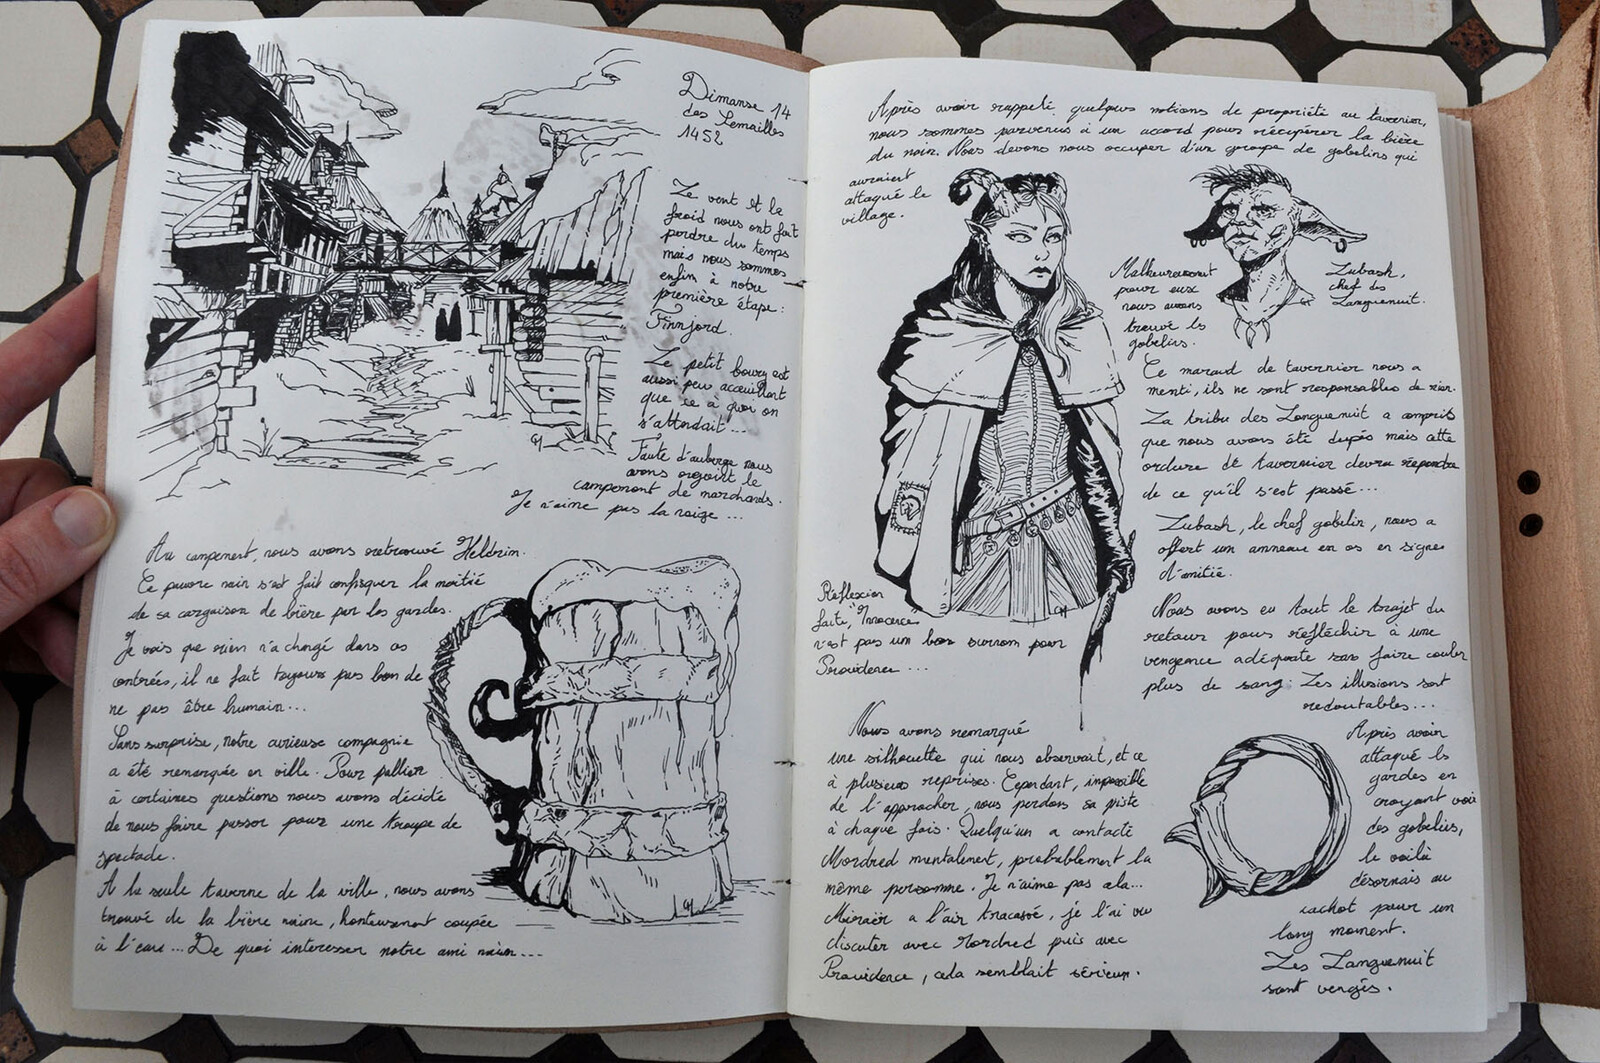 Dimanse 14
des Semailles
1452
Le vent et le
froid nous ont fait
perdre du temps
mais nous sommes
enfin à notre
première étape :
Finnjord.
Le petit bourg est
aussi peu acceuillant
que ce à quoi on
s'attendait ...
Faute d'auberge nous
avons rejoint le
campement de marchands.
Je n'aime pas la neige ...
Au campement, nous avons retrouvé Heldrim.
Ce pauvre nain s'est fait confisquer la moitié
de sa cargaison de bière par les gardes.
Je vois que rien n'a changé dans ces
contrées, il ne fait toujours pas bon de
ne pas être humain ...
Sans surprise, notre curieuse compagnie
a été remarquée en ville. Pour pallier
à certaines questions nous avons décidé
de nous faire passer pour une troupe de
spectacle.
A la seule taverne de la ville, nous avons
trouvé de la bière naine, honteusement coupée
à l'eau ... De quoi interesser notre ami nain ...
Après avoir rappelé quelques notions de propriété au tavernier,
nous sommes parvenus à un accord pour récupérer la bière
du nain. Nous devons nous occuper d'un groupe de gobelins qui
auraient
attaqué le
village.
Malheureusement
pour eux
nous avons
trouvé les
gobelins.
Zubash,
chef des
Languenuit.
Ce maraud de tavernier nous a
menti, ils ne sont responsables de rien.
La tribu des Languenuit a compris
que nous avons été dupés mais cette
ordure de tavernier devra répondre
de ce qu'il s'est passé ...
Zubash, le chef gobelin, nous a
offert un anneau en os en signe
d'amitié.
Nous avons eu tout le trajet du
retour pour réfléchir à une
vengeance adéquate sans faire couler
plus de sang. Les illusions sont
redoutables ...
Réflexion
faite, "Innocence"
n'est pas un bon surnom pour
Providence ...
Nous avons remarqué
une silhouette qui nous observait, et ce
à plusieurs reprises. Cependant, impossible
de l'approcher, nous perdons sa piste
à chaque fois. Quelqu'un a contacté
Mordred mentalement, probablement la
même personne. Je n'aime pas cela ...
a l'air tracassé, je l'ai vu
discuter avec Mordred puis avec
Providence, cela semblait sérieux.
Après avoir
attaqué les
gardes en
croyant voir
des gobelins,
le voilà
désormais au
cachot pour un
long moment.
Les Languenuit
sont vengés.